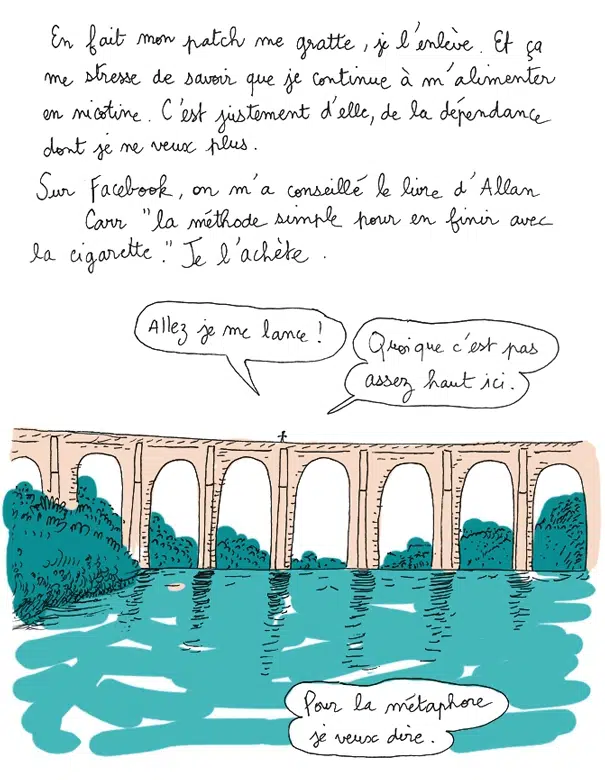 En fait mon patch me gratte, je l'enlève. Et ça
me stresse de savoir que je continue à m'alimenter
en nicotine. C'est justement d'elle, de la dépendance
dont je ne veux plus.
Sur Facebook, on m'a conseillé le livre d'Allan
Carr "la méthode simple pour en finir avec
la cigarette." Je l'achète.
Allez je me lance !
Quoique c'est pas
assez haut ici.
Pour la métaphore
je veux dire.